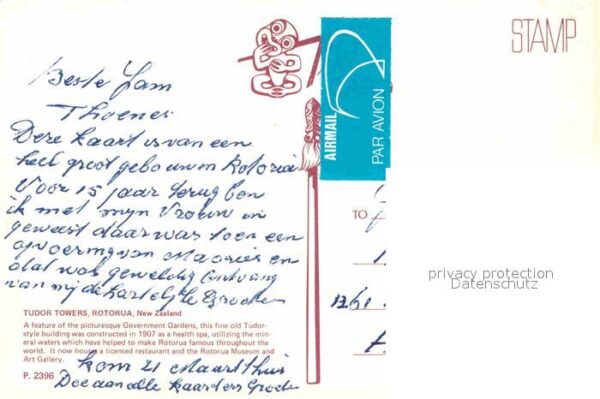 Beste Fam
Thoenes
Deze Kaart is van een
heel groot gebouw in Rotorua
Voor 15 jaar terug ben
ik met mijn Vrouw in
geweest daar was toen een
opvoering van Maories en
dat was geweldig Ontvang
van mij de hartelijke Groeten
TUDOR TOWERS, ROTORUA, New Zealand
A feature of the picturesque Government Gardens, this fine old Tudor-
style building was constructed in 1907 as a health spa, utilizing the min-
eral waters which have helped to make Rotorua famous throughout the
world. It now houses a licensed restaurant and the Rotorua Museum and
Art Gallery.
P. 2396
Kom 21 Maart thuis
Doe aan alle Kaarters Groeten
AIRMAIL
PAR AVION
STAMP
TO
1261
privacy protection
Datenschutz